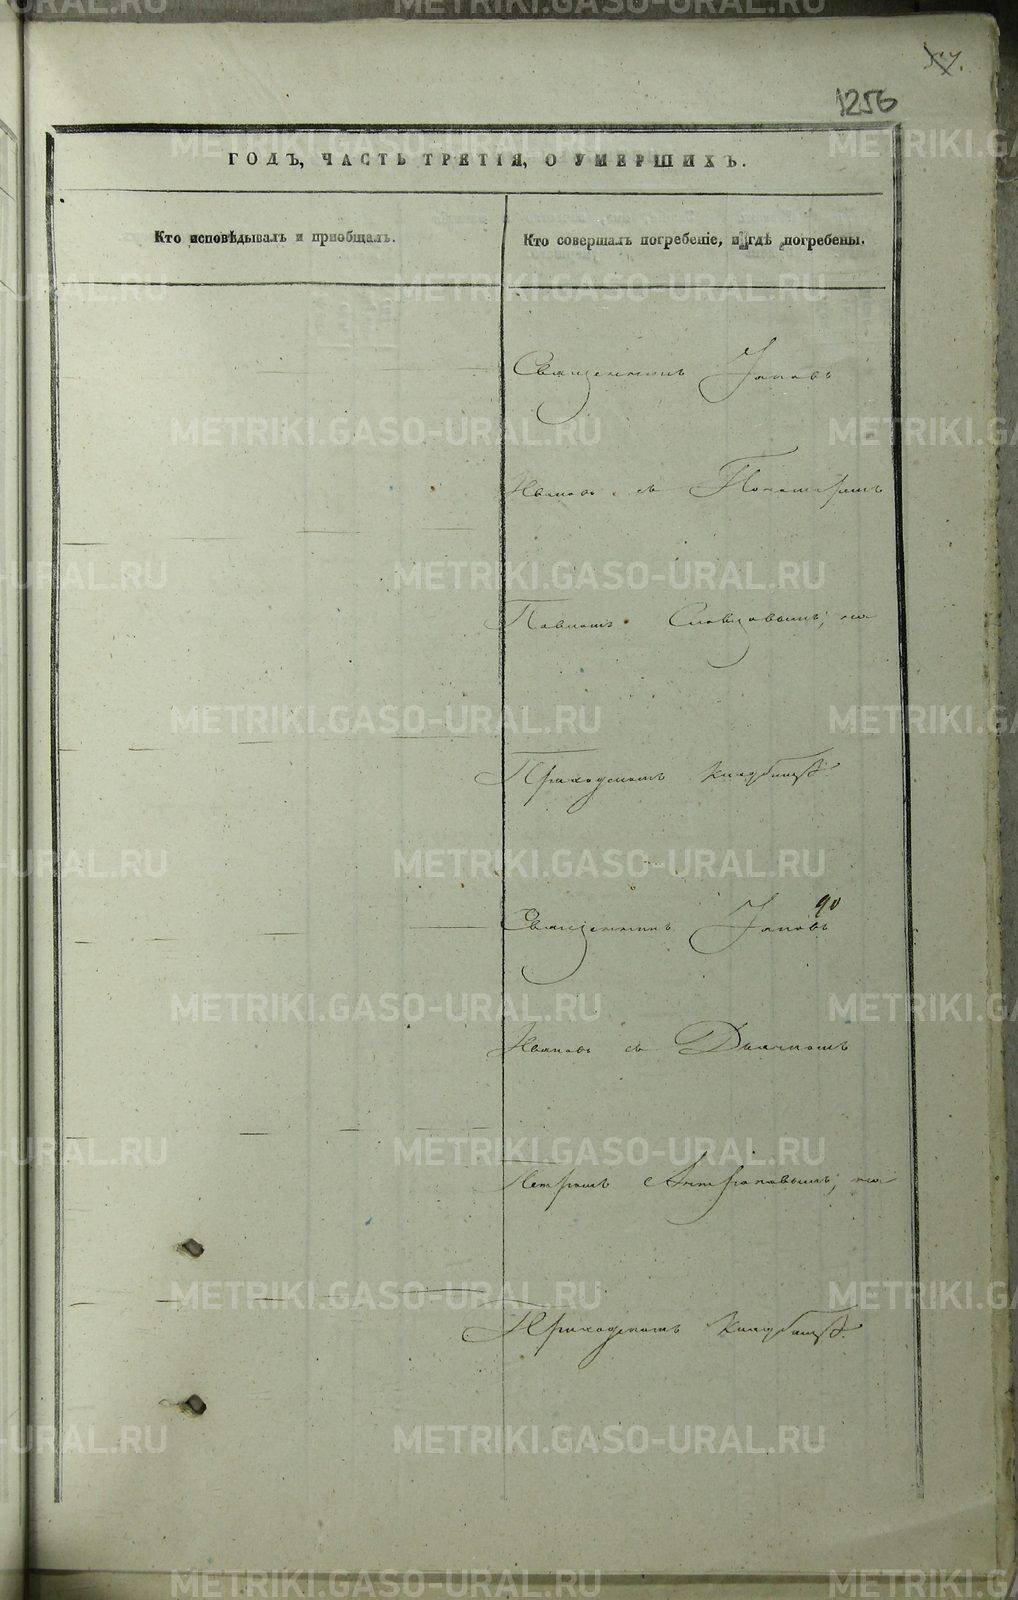 1256
ГОДЪ, ЧАСТЬ ТРЕТІЯ, О УМЕРШИХЪ.
Кто исповѣдывалъ и приобщалъ.
Кто совершалъ погребеніе, и гдѣ погребены.
Священникъ Іаковъ
Ивановъ съ Пономаремъ
Павломъ Словцовымъ, на
Приходскомъ кладбищѣ
Священникъ Іаковъ
Ивановъ съ Дьячкомъ
Петромъ Антроповымъ, на
Приходскомъ кладбищѣ.
METRIKI.GASO-URAL.RU